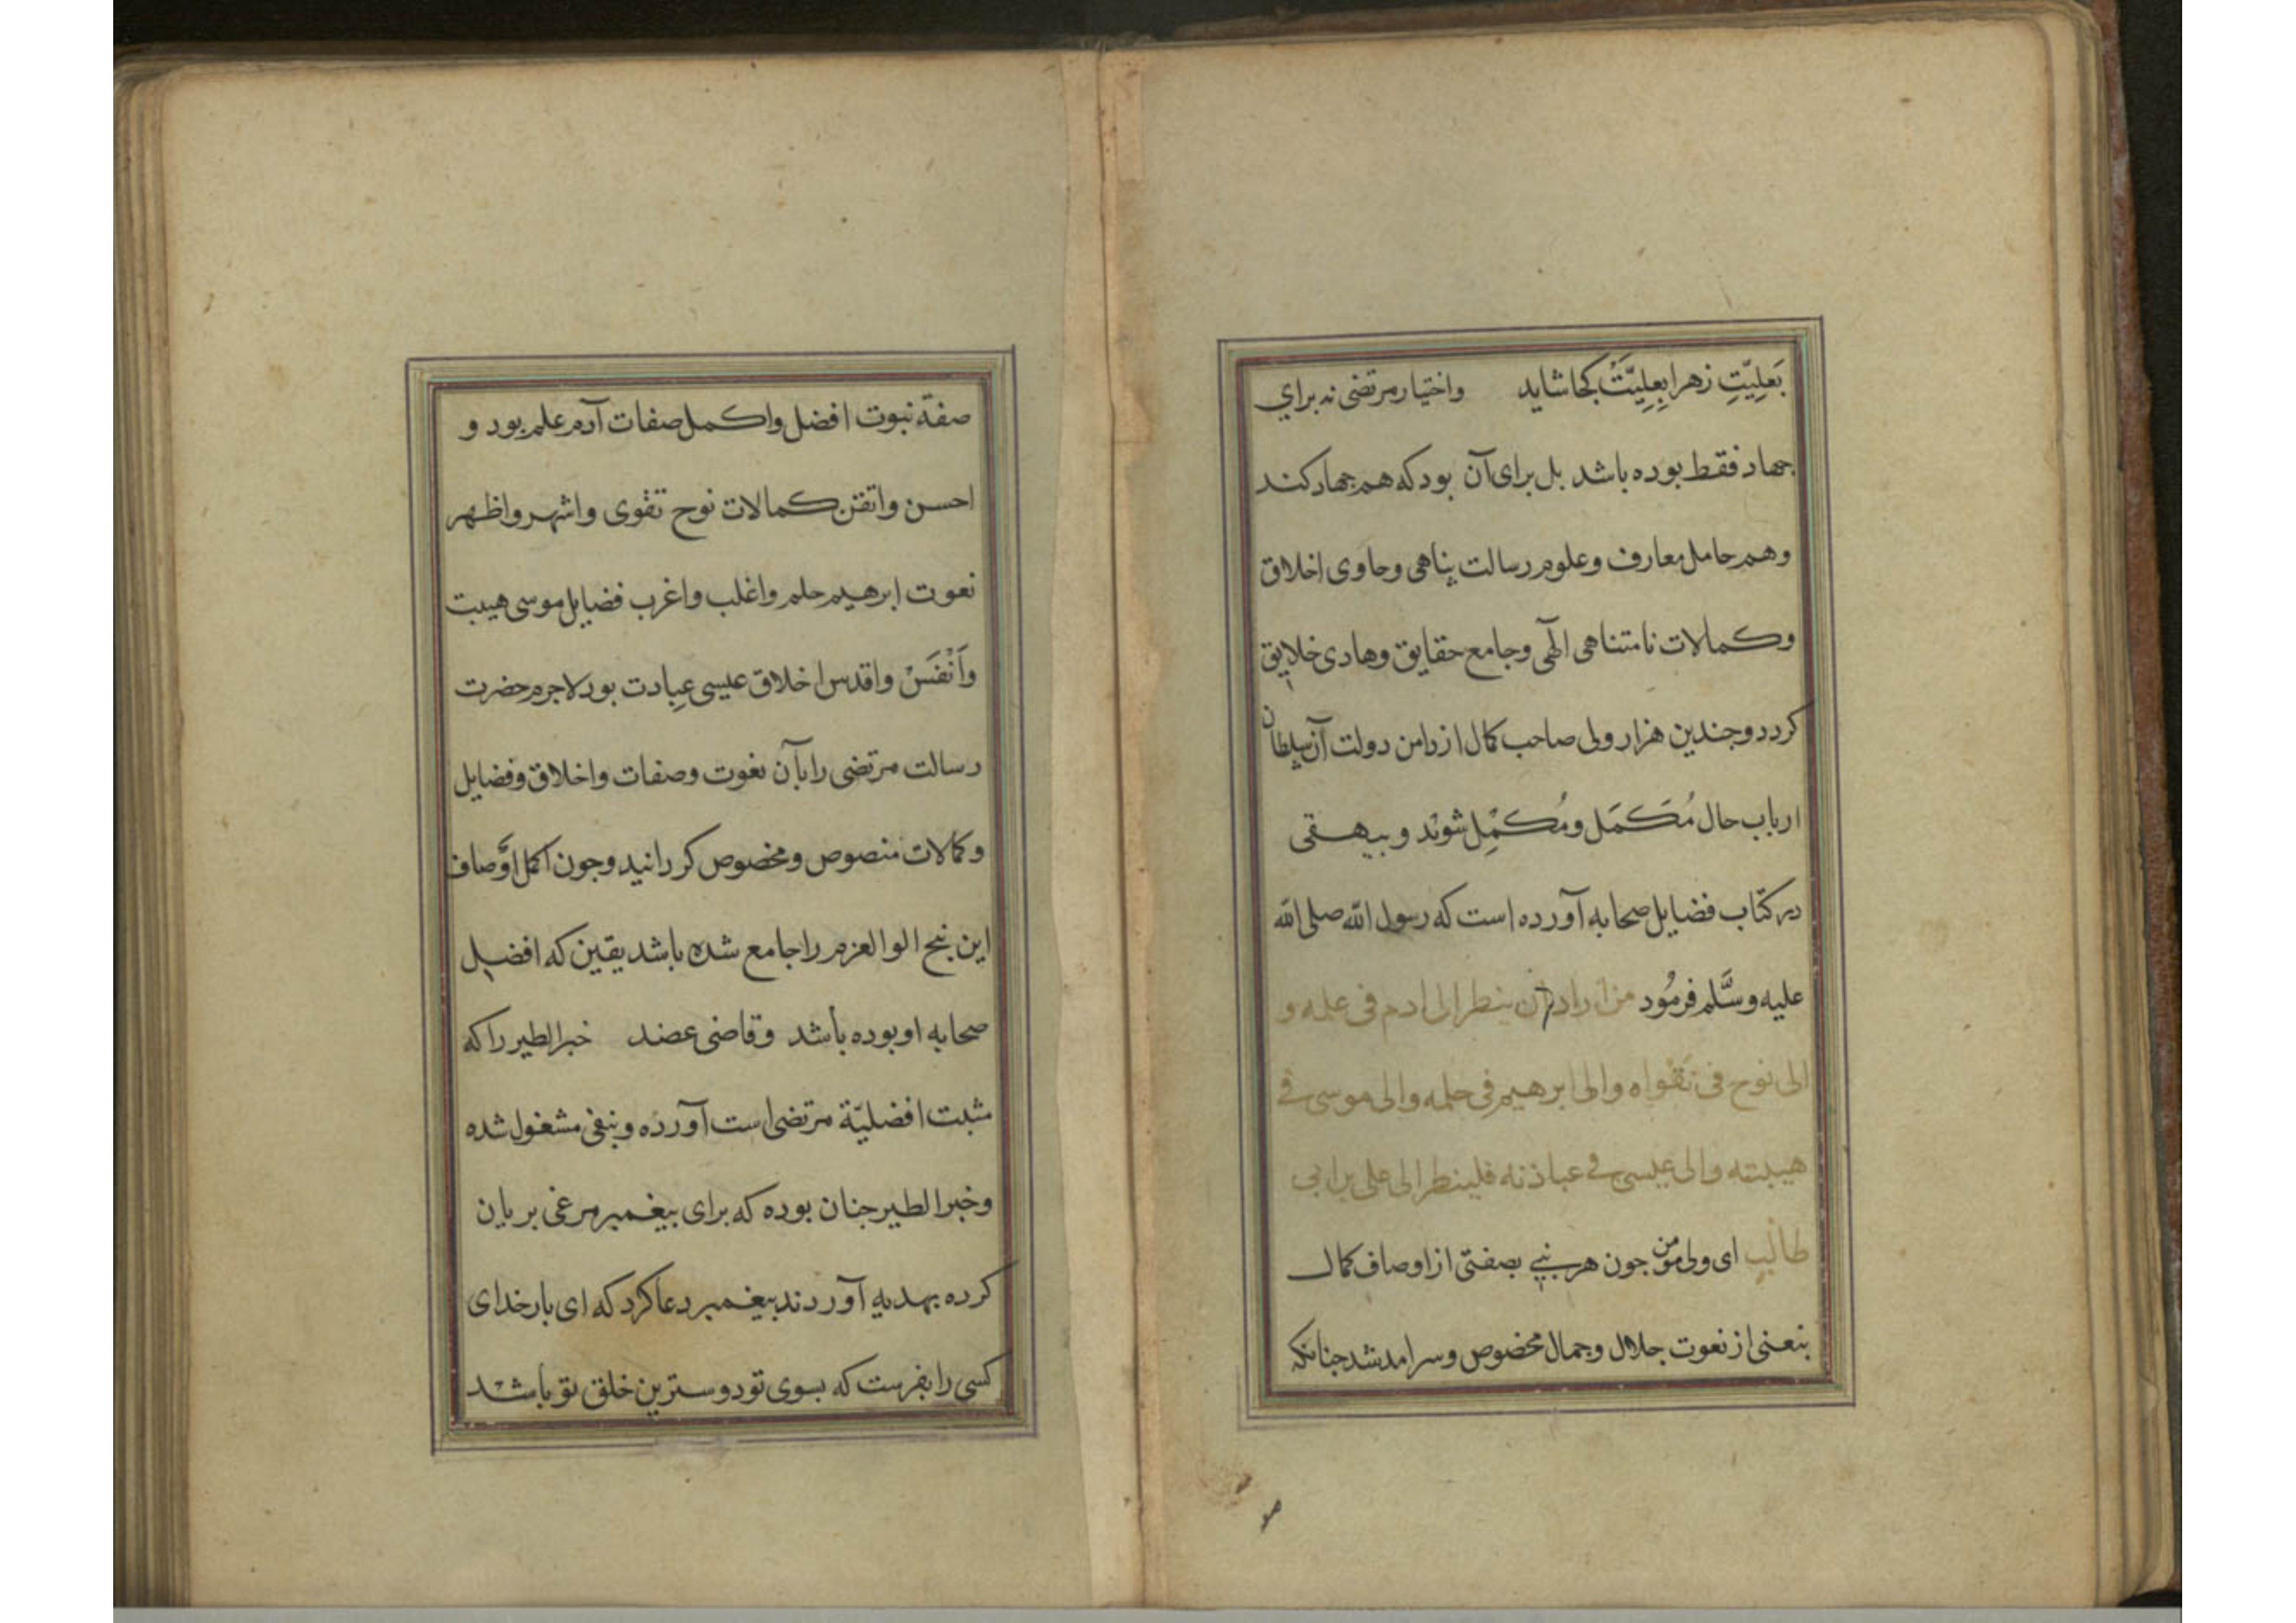 بَعلِیّتِ زهرا بِعِلِیَّتْ کجا شاید واختیار مرتضی نه برای
جهاد فقط بوده باشد بل برای آن بود که هم جهاد کند
وهم حامل معارف وعلوم رسالت پناهی وحاوی اخلاق
وکمالات نامتناهی الٓهی وجامع حقایق وهادی خلایق
کردد وجندین هزار ولی صاحب کمال از دامن دولت آن سلطان
ارباب حال مُکَمَل ومُکمِل شوند وبیهقی
در کتاب فضایل صحابه آورده است که رسول الله صلی الله
علیه وسَّلم فرمُود من اراد ان ینظر الی ادم فی علمه و
الی نوح فی تقواه والی ابرهیم فی حلمه والی موسی فی
هیبته والی عیسی فی عبادته فلینظر الی علی بن ابی
طالب ای ولی مؤمن جون هر نبیی بصفتی از اوصاف کمال
بنعتی از نعوت جلال وجمال مخصوص وسرامد شد جنانکه
صفة نبوت افضل واکمل صفات آدم علم بود و
احسن واتقن کمالات نوح تقوی واشهر واظهر
نعوت ابرهیم حلم واغلب واغرب فضایل موسی هیبت
وَاَنْفَسْ واقدس اخلاق عیسی عِبادت بود لاجرم حضرت
رسالت مرتضی را بآن نعوت وصفات واخلاق وفضایل
وکمالات منصوص ومخصوص کردانید وجون اکمل اوصاف
این نج الوا العزم را جامع شده باشد یقین که افضل
صحابه او بوده باشد وقاضی عضد خبر الطیر را که
مثبت افضلیّة مرتضی است آورده وبنفی مشغول شده
وخبر الطیر جنان بوده که برای بیغمبر مرغی بریان
کرده بهدیه آوردند بیغمبر دعا کرد که ای بار خدای
کسی را بفرست که بسوی تو دوسترین خلق تو باشد